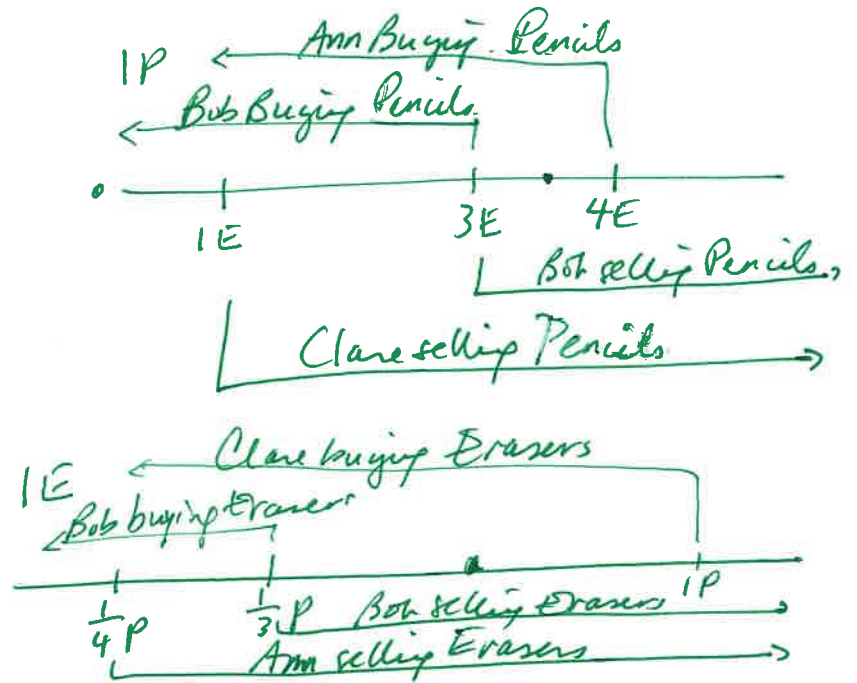 1P Ann Buying Pencils
Bob Buying Pencils
1E 3E 4E
Bob selling Pencils
Clare selling Pencils
1E Clare buying Erasers
Bob buying Erasers
1/4 P 1/3 P 1P
Bob selling Erasers
Ann selling Erasers